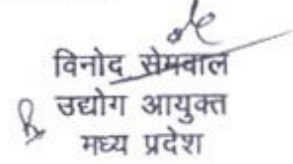 विनोद सेमवाल
उद्योग आयुक्त
मध्य प्रदेश